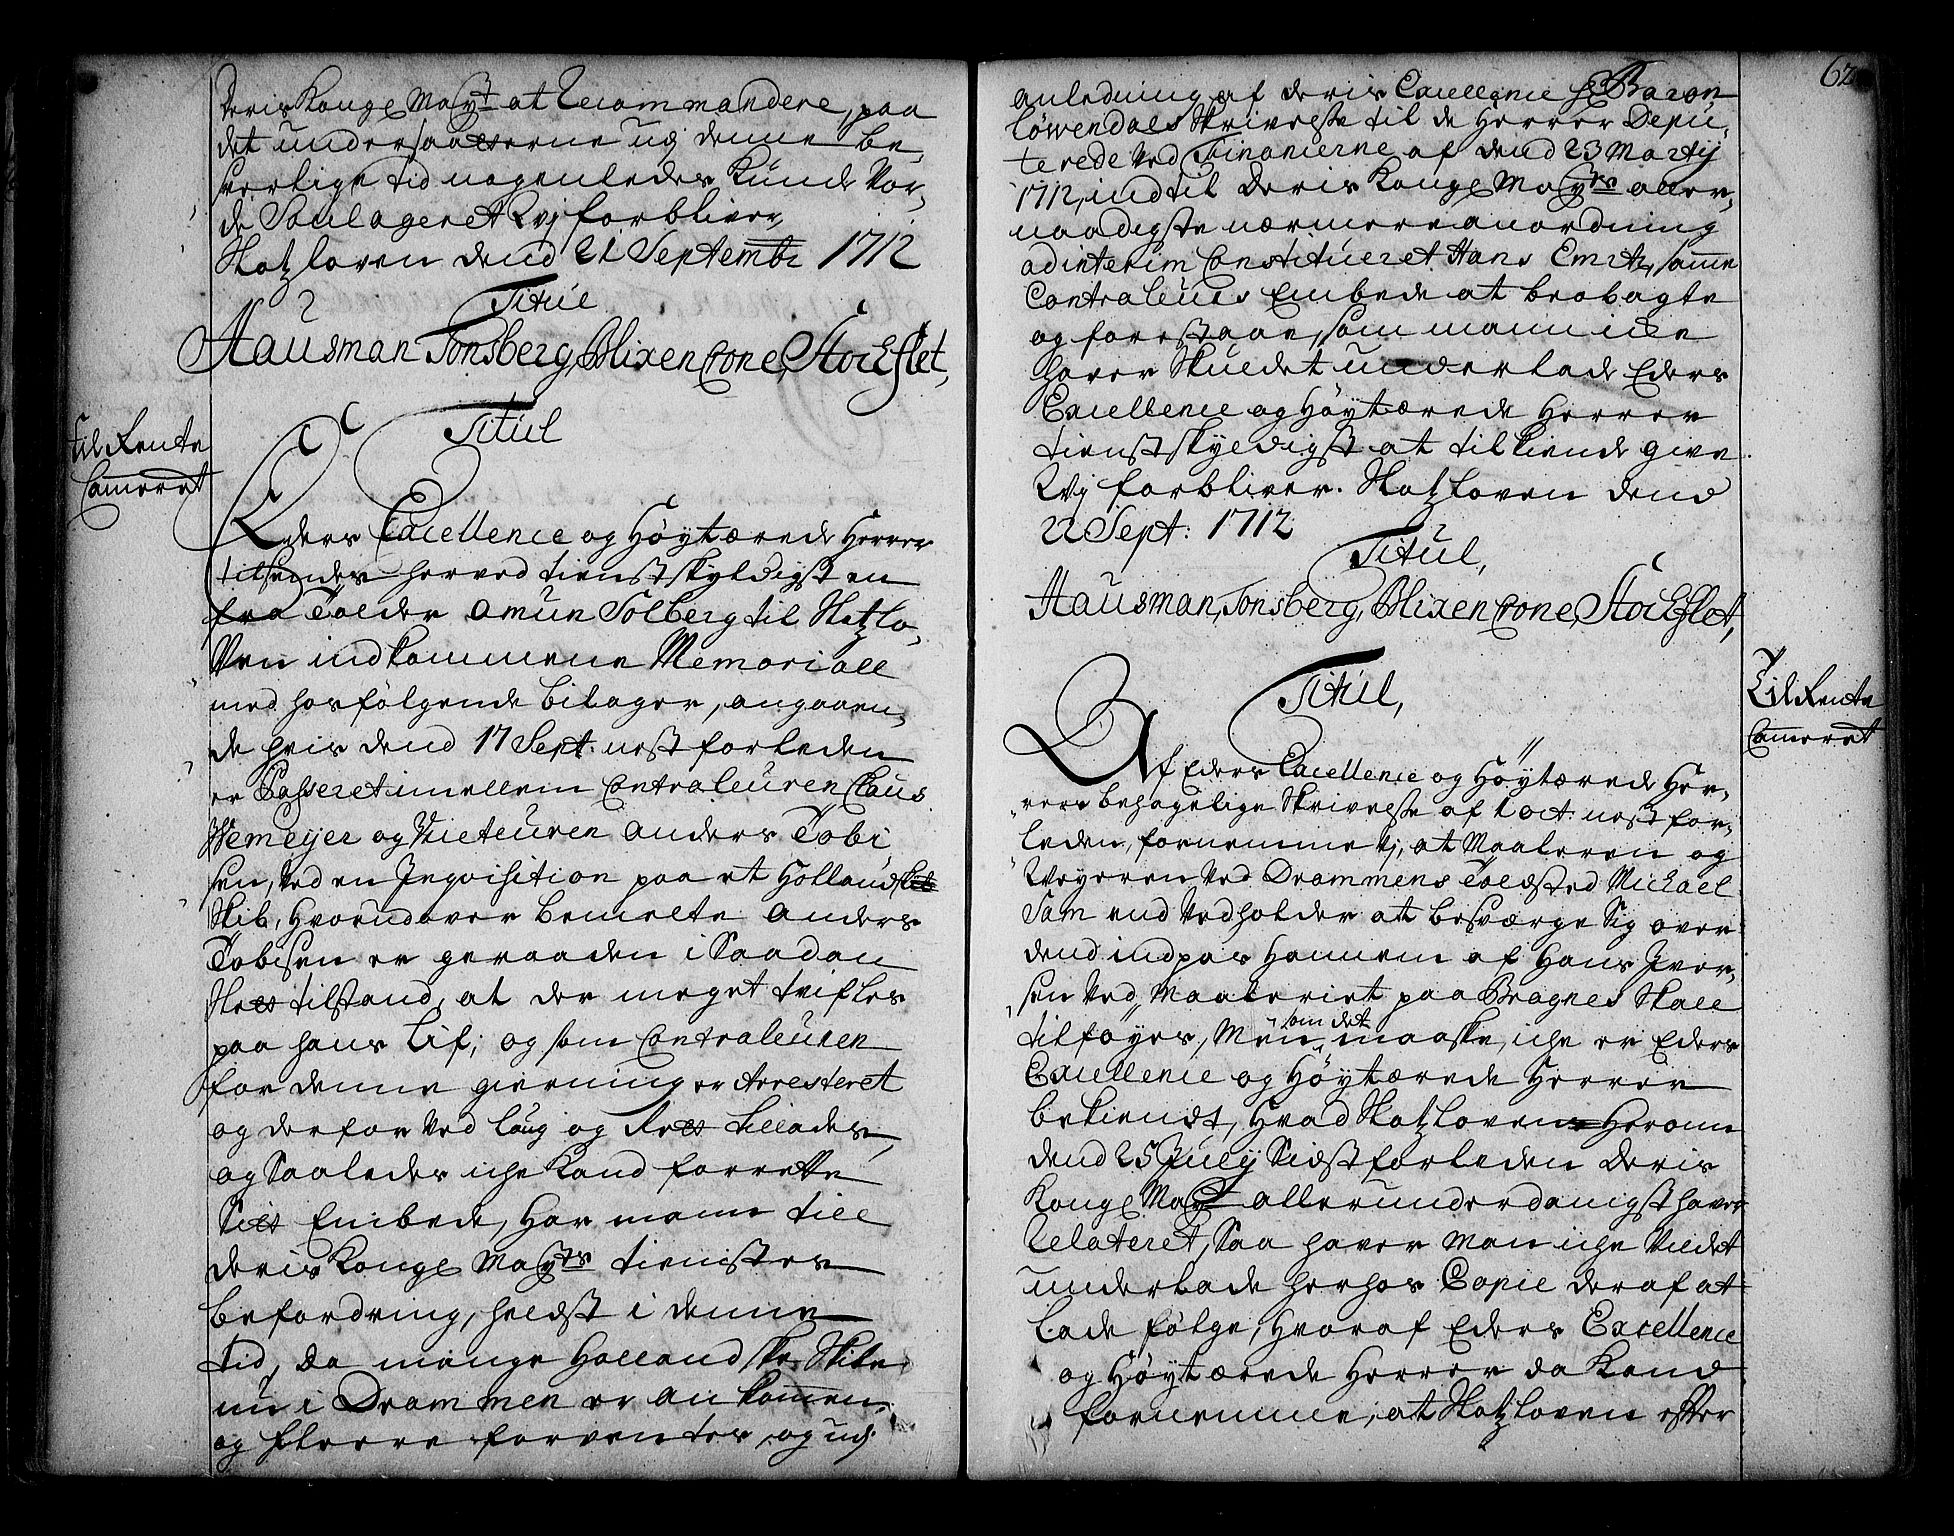 Deris Kongl May.t at Recommandere, paa
det undersaatterne udj denne be-
sverlige tid nogenledes Kunde Vor-
de Soulageret Vj forbliver,
Slotzloven dend 21 Septembr 1712
Titul
Hausman Tonsberg, Blixencrone, Stockflet,
Til Rente
Cameret
Titul
Eders Excellence og Höytærede Herrer
tilsendes herved tienstskyldigst en
fra Tolder Amun Solberg til Slotzlo-
ven indkommene Memoriall
med hosfölgende bilager, angaaen-
de hvis dend 17 Sept. nest forleden
er Passeret imellem Contraleuren Claus
Wemeyer og Visiteuren Anders Tobi-
sen, Ved en Inqvisition paa et Hollandsk
Skib, Hvorudover bemelte Anders
Tobisen er geraaden i Saadan
Slet tilstand, at der meget tvifles
paa hans Lif; og som Contraleuren
for denne gierning er Arresteret
og derfor Ved Loug og Ret tillades,
og Saaledes iche Kand forrette
Sit Embede, Har mann till
Deris Kongl May.ts tienistes
befordring, heldst i denne
tid, da mange Hollandske Skibe
nu i Drammen er ankommen,
og fleere forventes, og udj
62
anledning af deris Excellence H. Baron
Löwendals Skrivelse til de Herrer Depu-
terede Ved Financierne af dend 23 Martij
1712, indtil Deris Kongl May.ts aller-
naadigste nærmere anordning
ad interim Constitueret Hans Emitz, samme
Contraleurs Embede at beobagte
og forestaae, som mann icke
haver Skuldet underlade Eders
Excellence og Höytærede Herrer
tienstskyldigst at tilkiende give
Vj forbliver. Slotzloven dend
22 Sept: 1712
Titul,
Hausman, Tonsberg, Blixencrone, Stockflet,
Til Rente
Cameret
Titul,
Af Eders Excellence og Höytærede Her-
rers behagelige Skrivelse af 1 oct. nest for-
leden, fornemme Vj, at Maaleren og
Veyeren Ved Drammens Toldsted Michael
Sam end Vedholder at besværge Sig over
dend indpas Hannem af Hans Iver-
sen Ved Maaleriet paa Bragnes Skall
tilföyes, Men som det maaske, iche er Eders
Excellence og Höytærede Herrer
bekiendt, Hvad Slotzloven Herom
dend 25 July Sidst forleden Deris
Kongl May.t allerunderdanigst haver
Relateret, Saa haver Man iche Villet
underlade herhos Copie deraf at
lade fölge, Hvoraf Eders Excellence
og Höytærede Herrer da Kand
fornemme, at Slotzloven efter